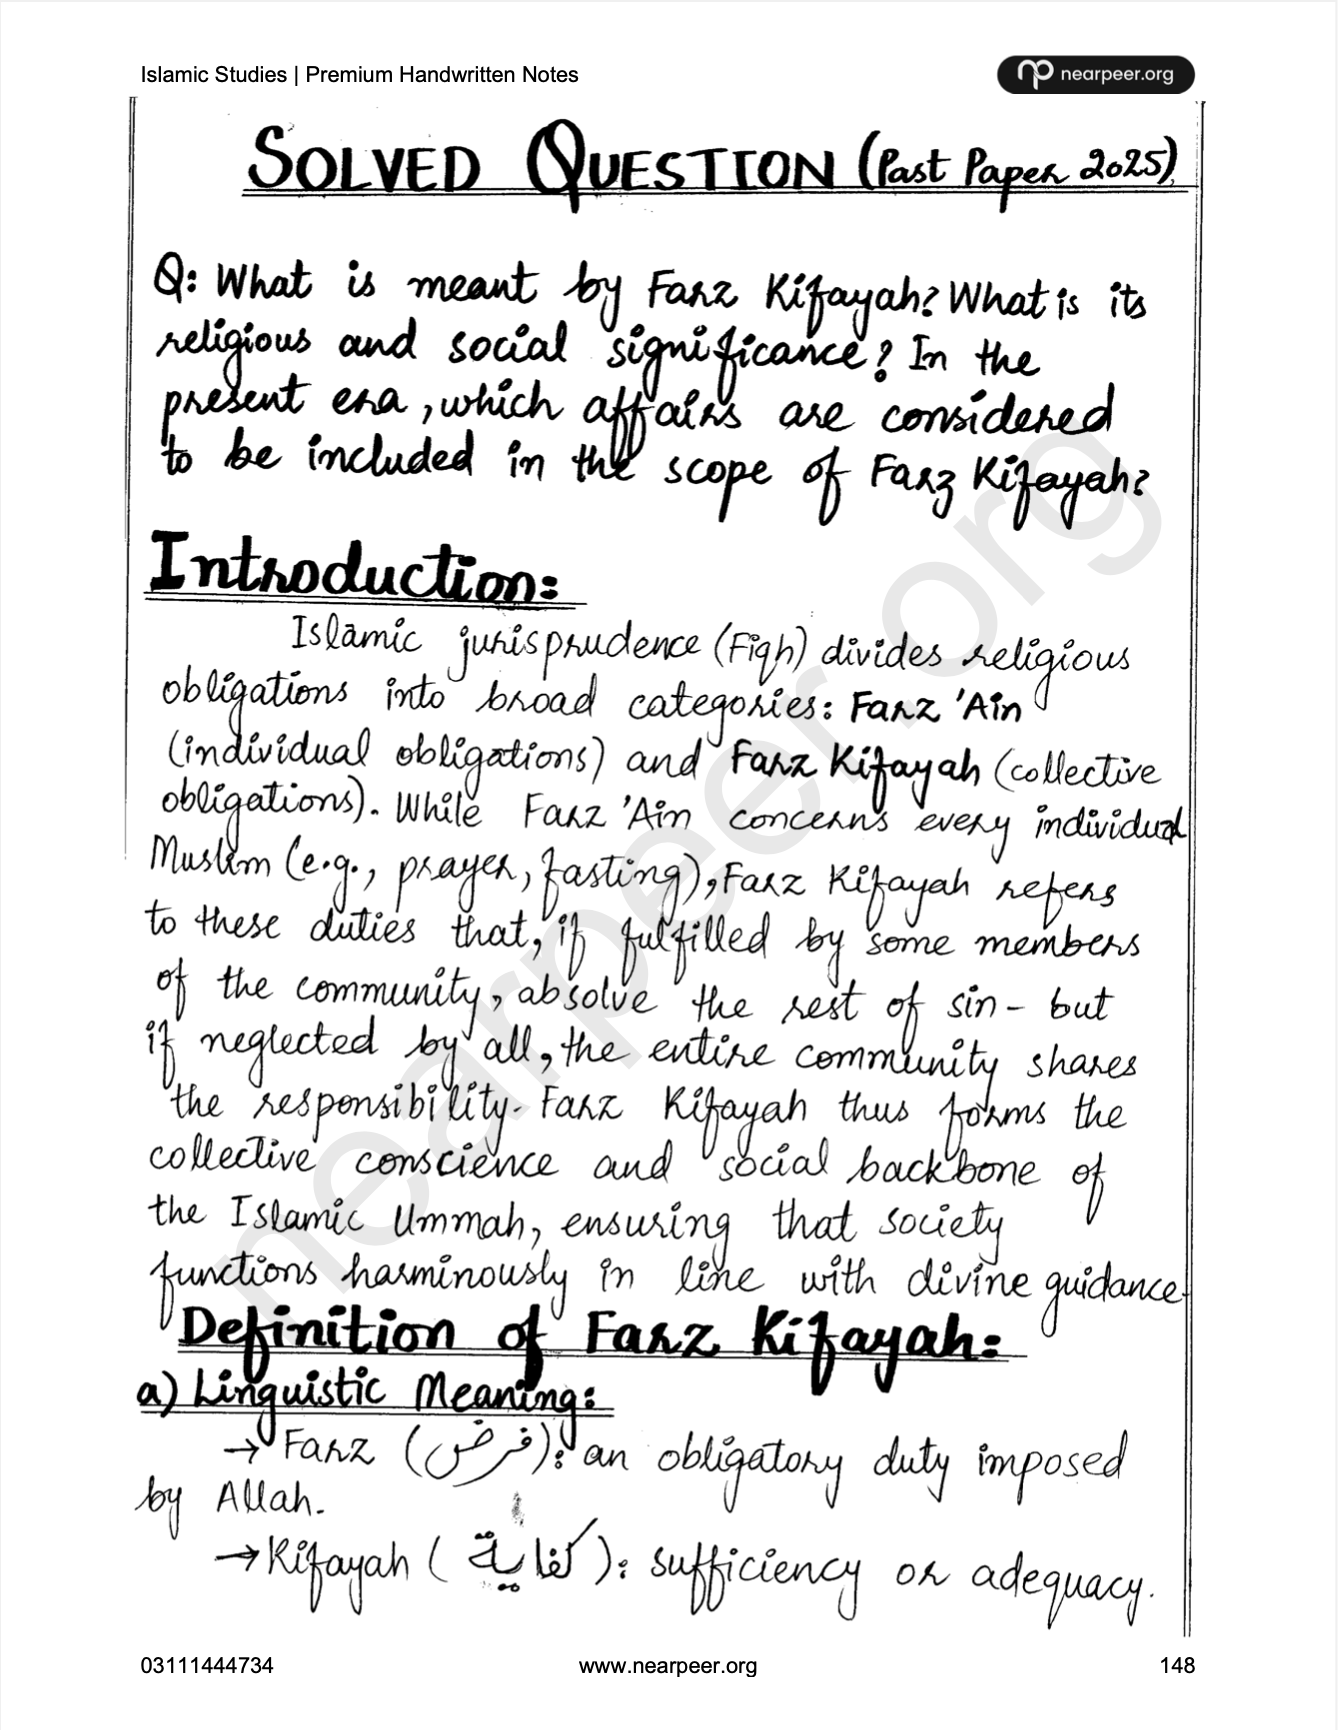 Islamic Studies | Premium Handwritten Notes
nearpeer.org
SOLVED QUESTION (Past Paper 2025)
Q: What is meant by Farz Kifayah? What is its
religious and social significance? In the
present era, which affairs are considered
to be included in the scope of Farz Kifayah?
Introduction:
Islamic jurisprudence (Fiqh) divides religious
obligations into broad categories: Farz 'Ain
(individual obligations) and Farz Kifayah (collective
obligations). While Farz 'Ain concerns every individual
Muslim (e.g., prayer, fasting), Farz Kifayah refers
to these duties that, if fulfilled by some members
of the community, absolve the rest of sin - but
if neglected by all, the entire community shares
the responsibility. Farz Kifayah thus forms the
collective conscience and social backbone of
the Islamic Ummah, ensuring that society
functions harminously in line with divine guidance.
Definition of Farz Kifayah:
a) Linguistic Meaning:
→ Farz (فرض): an obligatory duty imposed
by Allah.
→ Kifayah (كفاية): sufficiency or adequacy.
nearpeer.org
03111444734 www.nearpeer.org 148